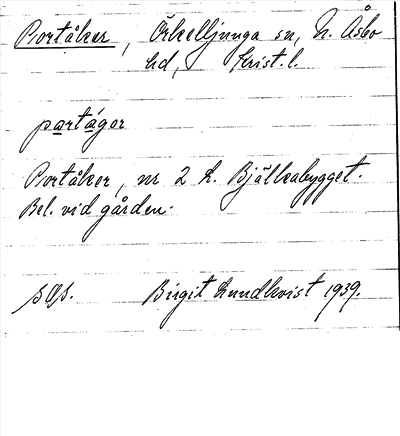 Portåker, Örkelljunga sn, N. Åsbo
hd, Krist. l.
partågor
Portåker, nr 2 h. Bjälkabygget.
Bel. vid gården.
Birgit Lundkvist 1939.